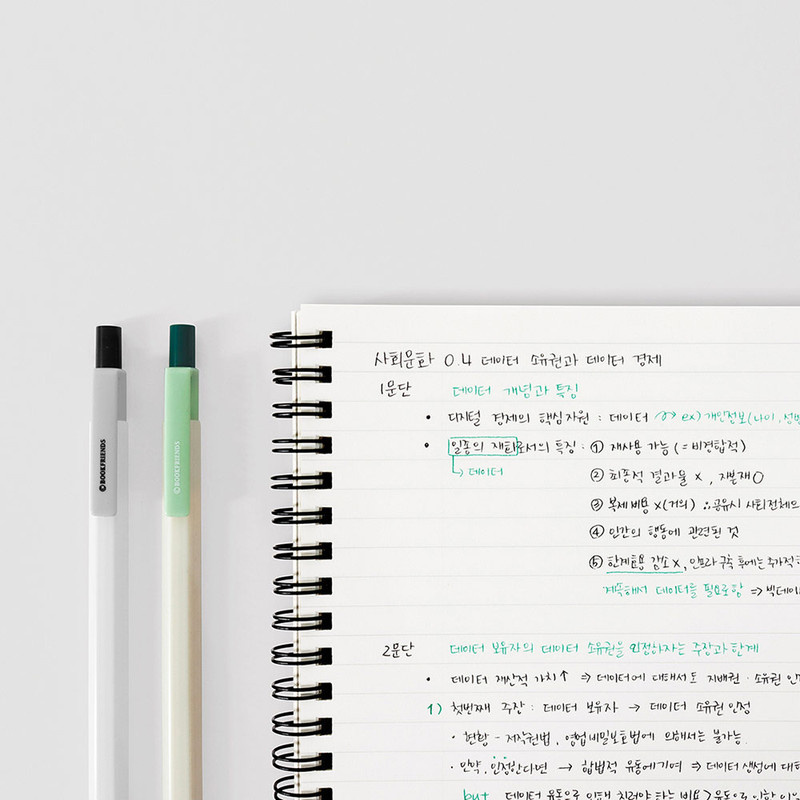 ©BOOKFRIENDS
©BOOKFRIENDS
사회문화 0.4 데이터 소유권과 데이터 경제
1문단 데이터 개념과 특징
• 디지털 경제의 핵심자원 : 데이터 ex) 개인정보(나이, 성별
• 일종의 재화로서의 특징 : ① 재사용 가능 (= 비경합적)
↳ 데이터
② 최종적 결과물 x , 자본재 O
③ 복제비용 x(거의) ∴공유시 사회전체의
④ 인간의 행동에 관련된 것
⑤ 한계효용 감소 x, 인프라 구축 후에는 추가적
계속해서 데이터를 필요로 함 => 빅데이
2문단 데이터 보유자의 데이터 소유권을 인정하자는 주장과 한계
• 데이터 재산적 가치↑ ⇒ 데이터에 대해서도 지배권 · 소유권 인
1) 첫번째 주장 : 데이터 보유자 → 데이터 소유권 인정
· 현황 - 저작권법, 영업비밀보호법에 의해서는 불가능.
· 만약, 인정한다면 → 합법적 유통에 기여 ⇒ 데이터 생성에 대
but 데이터 유통으로 인해 치러야 하는 비용 > 유통으로 인한